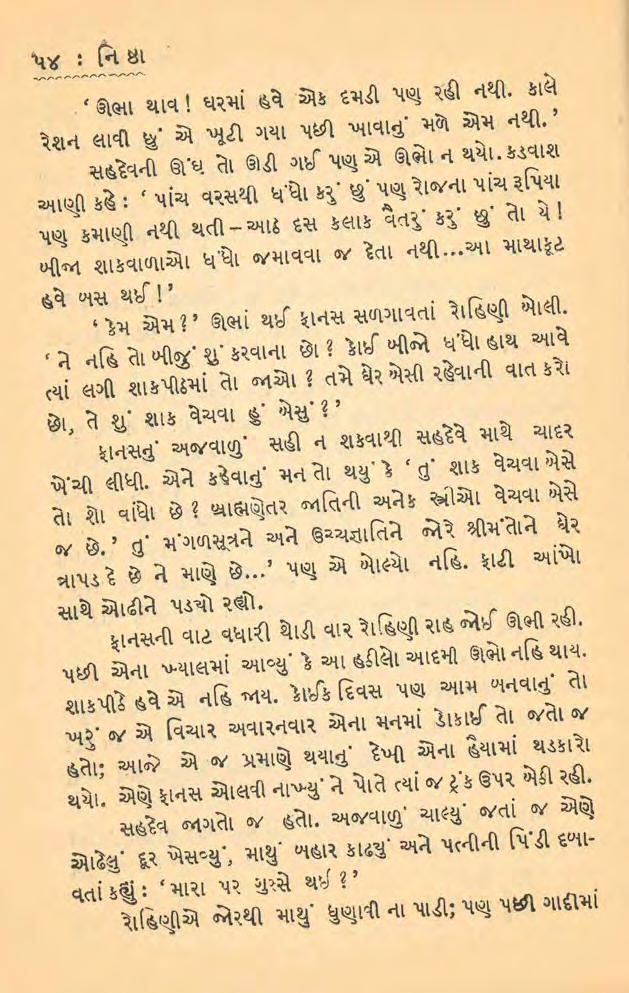 ૫૪ : નિ ષ્ઠા
‘ ઊભા થાવ ! ઘરમાં હવે એક દમડી પણ રહી નથી. કાલે
રેશન લાવી છું એ ખૂટી ગયા પછી ખાવાનું મળે એમ નથી.’
સહદેવની ઊંઘ તો ઊડી ગઈ પણ એ ઊભો ન થયો. કડવાશ
આણી કહે : ‘ પાંચ વરસથી ધંધો કરું છું પણ રોજના પાંચ રૂપિયા
પણ કમાણી નથી થતી – આઠ દસ કલાક વૈતરું કરું છું તો યે !
બીજા શાકવાળાઓ ધંધો જમાવવા જ દેતા નથી...આ માથાકૂટ
હવે બસ થઈ !’
‘ કેમ એમ ?’ ઊભાં થઈ ફાનસ સળગાવતાં રોહિણી બોલી.
‘ને નહિ તો બીજું શું કરવાના છો ? કોઈ બીજો ધંધો હાથ આવે
ત્યાં લગી શાકપીઠમાં તો જાઓ ? તમે ઘેર બેસી રહેવાની વાત કરો
છો, તે શું શાક વેચવા હું બેસું ?’
ફાનસનું અજવાળું સહી ન શકવાથી સહદેવે માથે ચાદર
ખેંચી લીધી. એને કહેવાનું મન તો થયું કે ‘ તું શાક વેચવા બેસે
તો શો વાંધો છે ? બ્રાહ્મણેતર જાતિની અનેક સ્ત્રીઓ વેચવા બેસે
જ છે.’ તું મંગળસૂત્રને અને ઉચ્ચજ્ઞાતિને જોરે શ્રીમંતોને ઘેર
ત્રાપડ દે છે ને માણે છે...’ પણ એ બોલ્યો નહિ. ફાટી આંખો
સાથે ઓઢીને પડયો રહ્યો.
ફાનસની વાટ વધારી થોડી વાર રોહિણી રાહ જોઈ ઊભી રહી.
પછી એના ખ્યાલમાં આવ્યું કે આ હઠીલો આદમી ઊભો નહિ થાય.
શાકપીઠે હવે એ નહિ જાય. કોઈક દિવસ પણ આમ બનવાનું તો
ખરું જ એ વિચાર અવારનવાર એના મનમાં ડોકાઈ તો જતો જ
હતો; આજે એ જ પ્રમાણે થયાનું દેખી એના હૈયામાં થડકારો
થયો. એણે ફાનસ ઓલવી નાખ્યું ને પોતે ત્યાં જ ટ્રંક ઉપર બેઠી રહી.
સહદેવ જાગતો જ હતો. અજવાળું ચાલ્યું જતાં જ એણે
ઓઢેલું દૂર ખેસવ્યું, માથું બહાર કાઢયું અને પત્નીની પિંડી દબા-
વતાં કહ્યું : ‘મારા પર ગુસ્સે થઈ ?’
રોહિણીએ જોરથી માથું ધુણાવી ના પાડી; પણ પછી ગાદીમાં